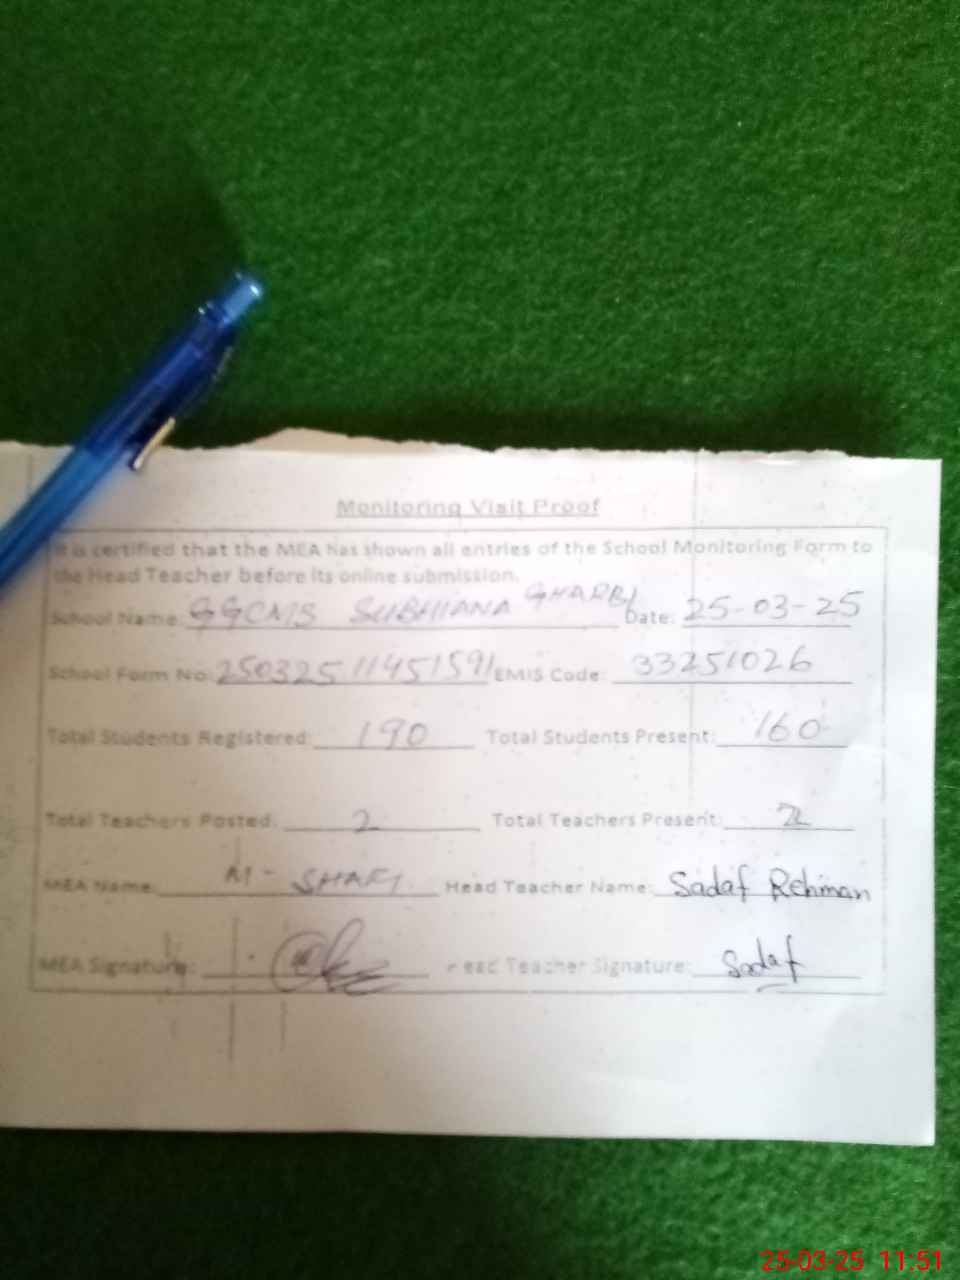 Monitoring Visit Proof
It is certified that the MEA has shown all entries of the School Monitoring Form to
the Head Teacher before its online submission.
School Name: GGCMS SUBHIANA GHARBI Date: 25-03-25
School Form No: 25032511451591 EMIS Code: 33251026
Total Students Registered: 190 Total Students Present: 160
Total Teachers Posted: 2 Total Teachers Present: 2
MEA Name: M- SHAFI Head Teacher Name: Sadaf Rehman
MEA Signature: Head Teacher Signature: Sadaf
25-03-25 11:51